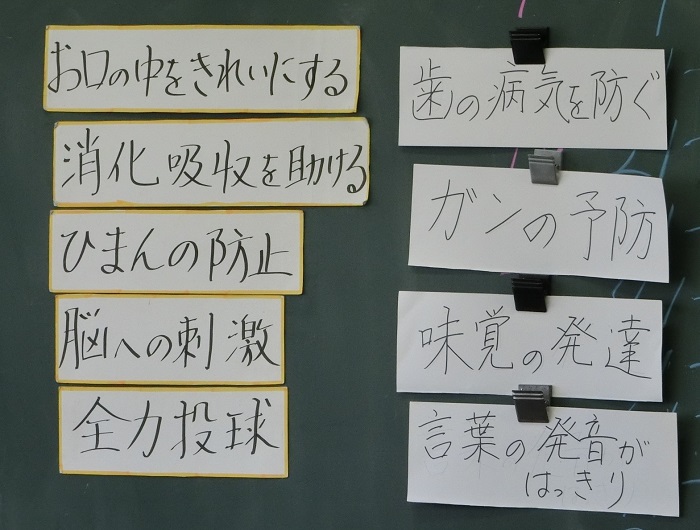 お口の中をきれいにする
消化吸収を助ける
ひまんの防止
脳への刺激
全力投球
歯の病気を防ぐ
ガンの予防
味覚の発達
言葉の発音が
はっきり